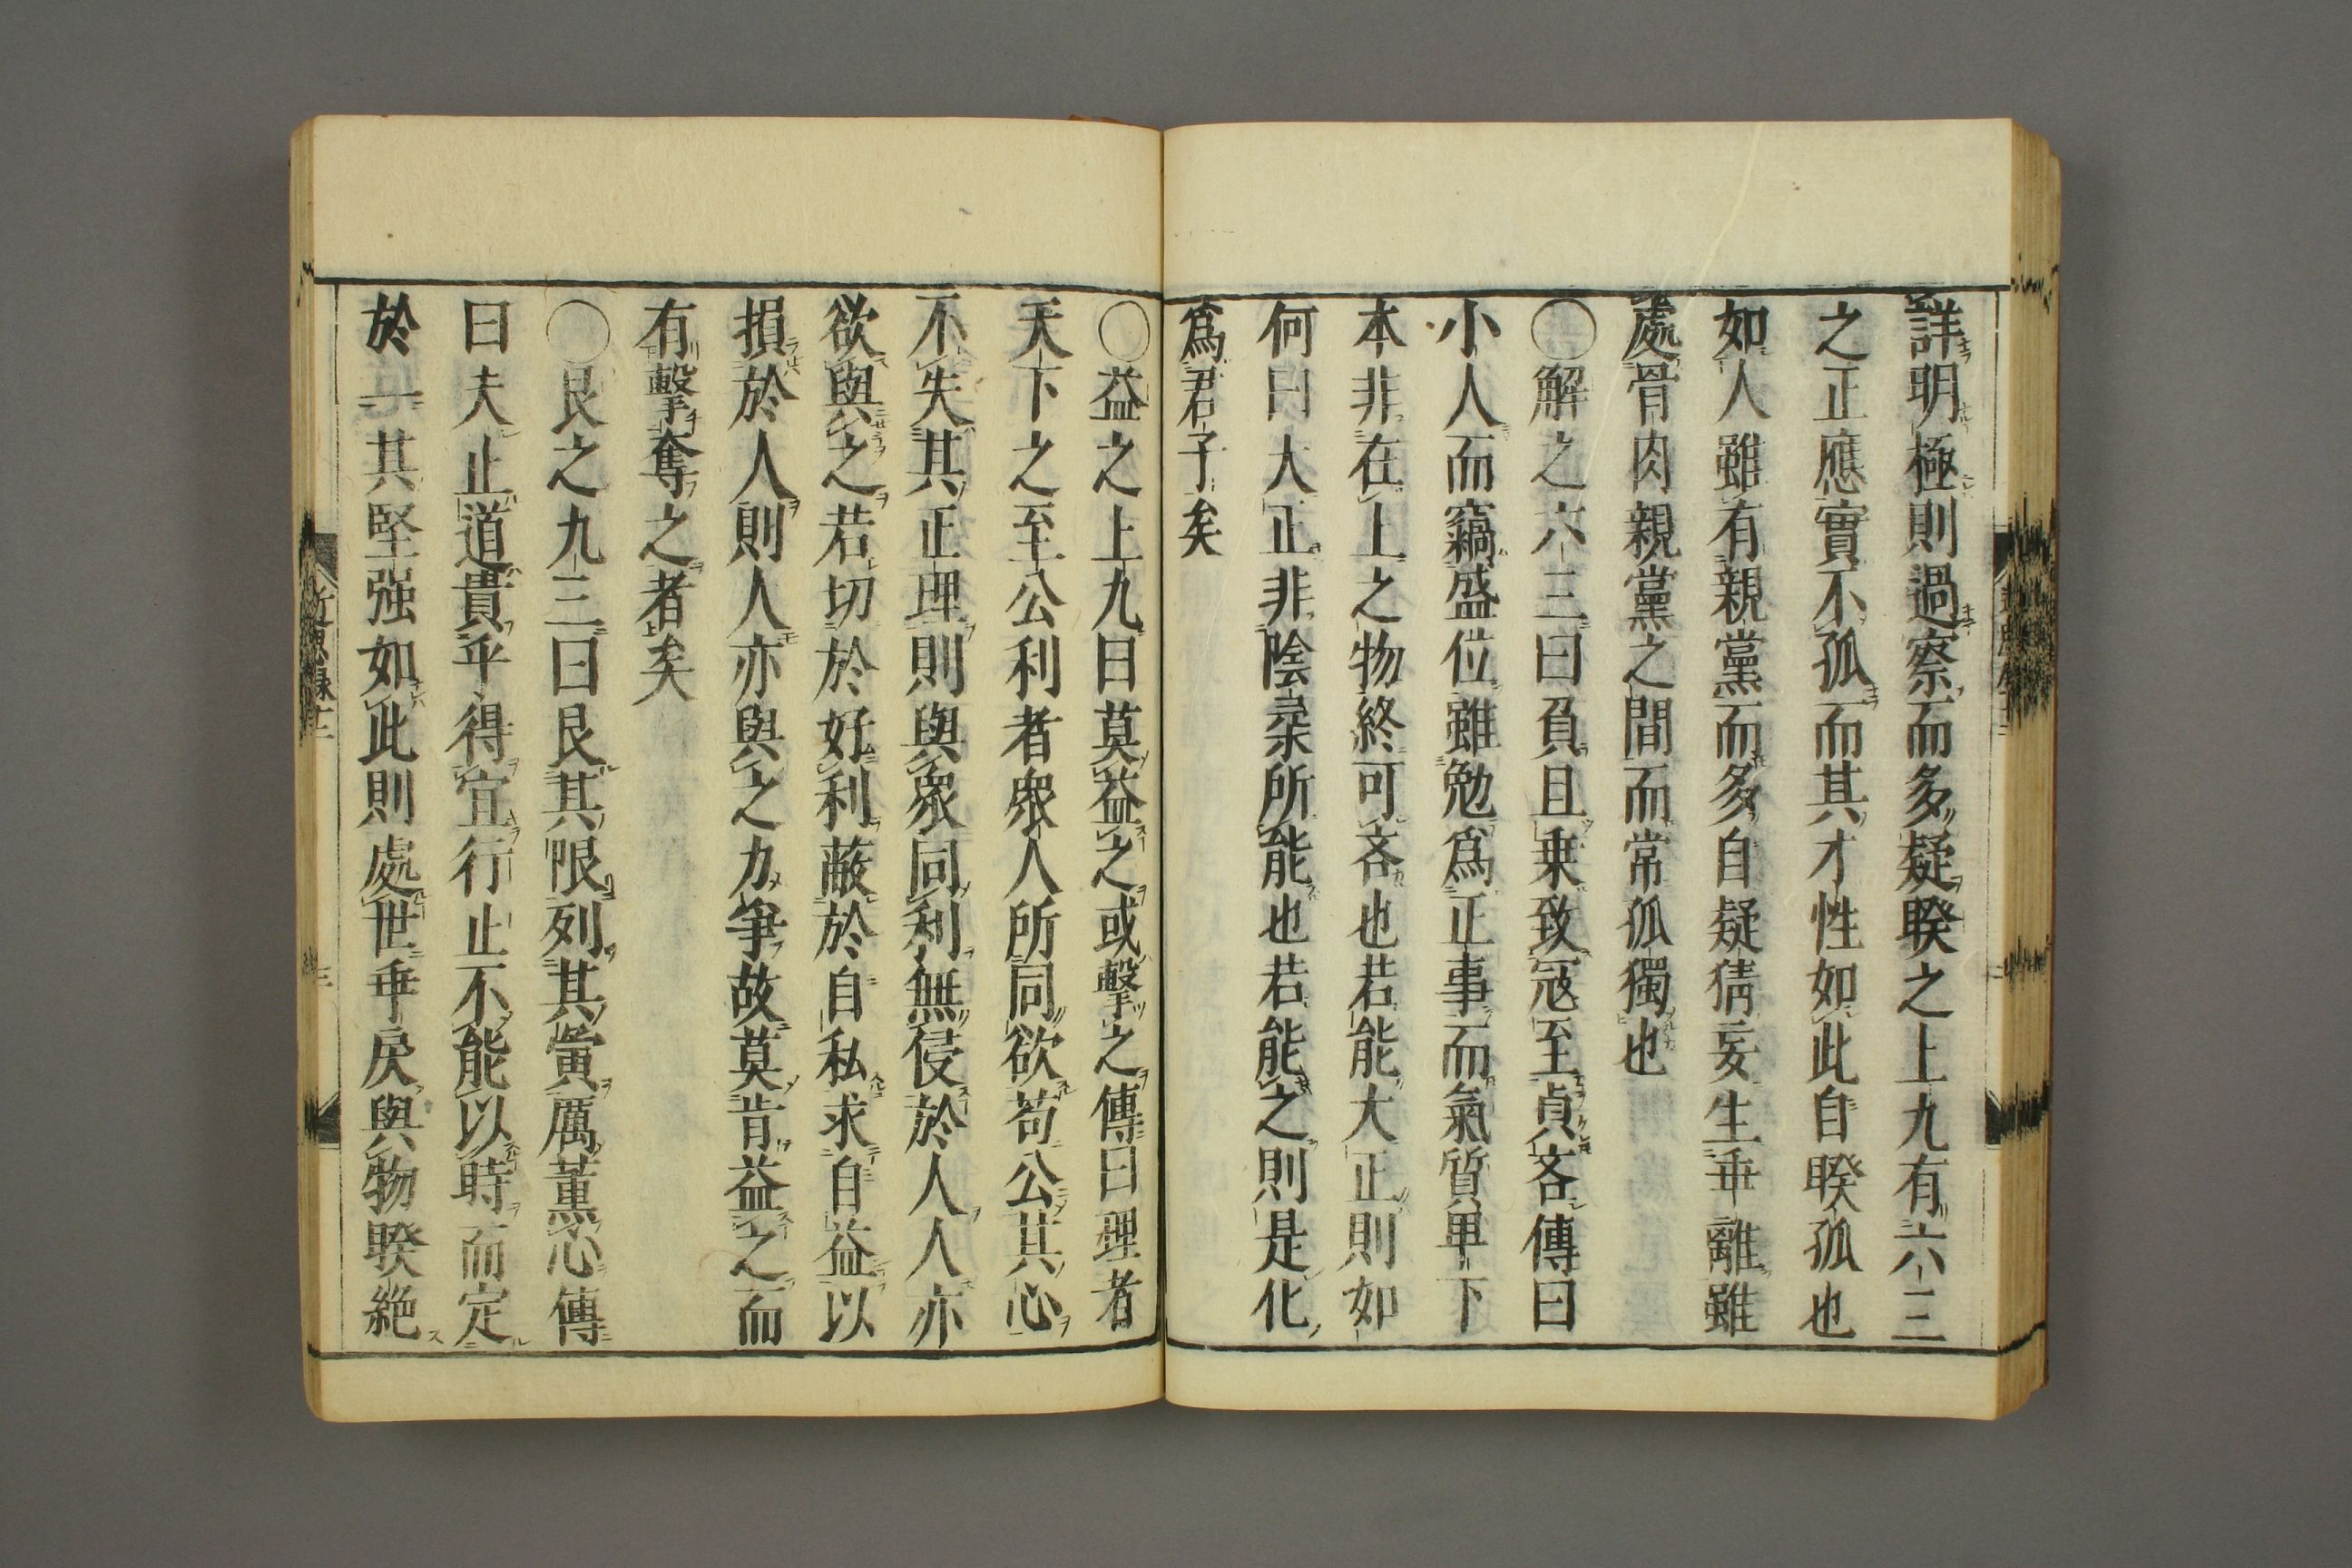 詳明極則過察而多疑睽之上九有六三
之正應實不孤而其才性如此自睽孤也
如人雖有親黨而多自疑猜妄生乖離雖
處骨肉親黨之間而常孤獨也
〇解之六三曰負且乗致冦至貞吝傳曰
小人而竊盛位雖勉爲正事而氣質卑下
本非在上之物終可吝也若能大正則如
何曰大正非陰柔所能也若能之則是化
爲君子矣
〇益之上九曰莫益之或擊之傳曰理者
天下之至公利者衆人所同欲苟公其心
不失其正理則與衆同利無侵於人人亦
欲與之若切於好利蔽於自私求自益以
損於人則人亦與之力爭故莫肯益之而
有擊奪之者矣
〇艮之九三曰艮其限列其夤厲薫心傳
曰夫止道貴乎得宜行止不能以時而定
於一其堅强如此則處世乖戾與物睽絶
近思録十二
三